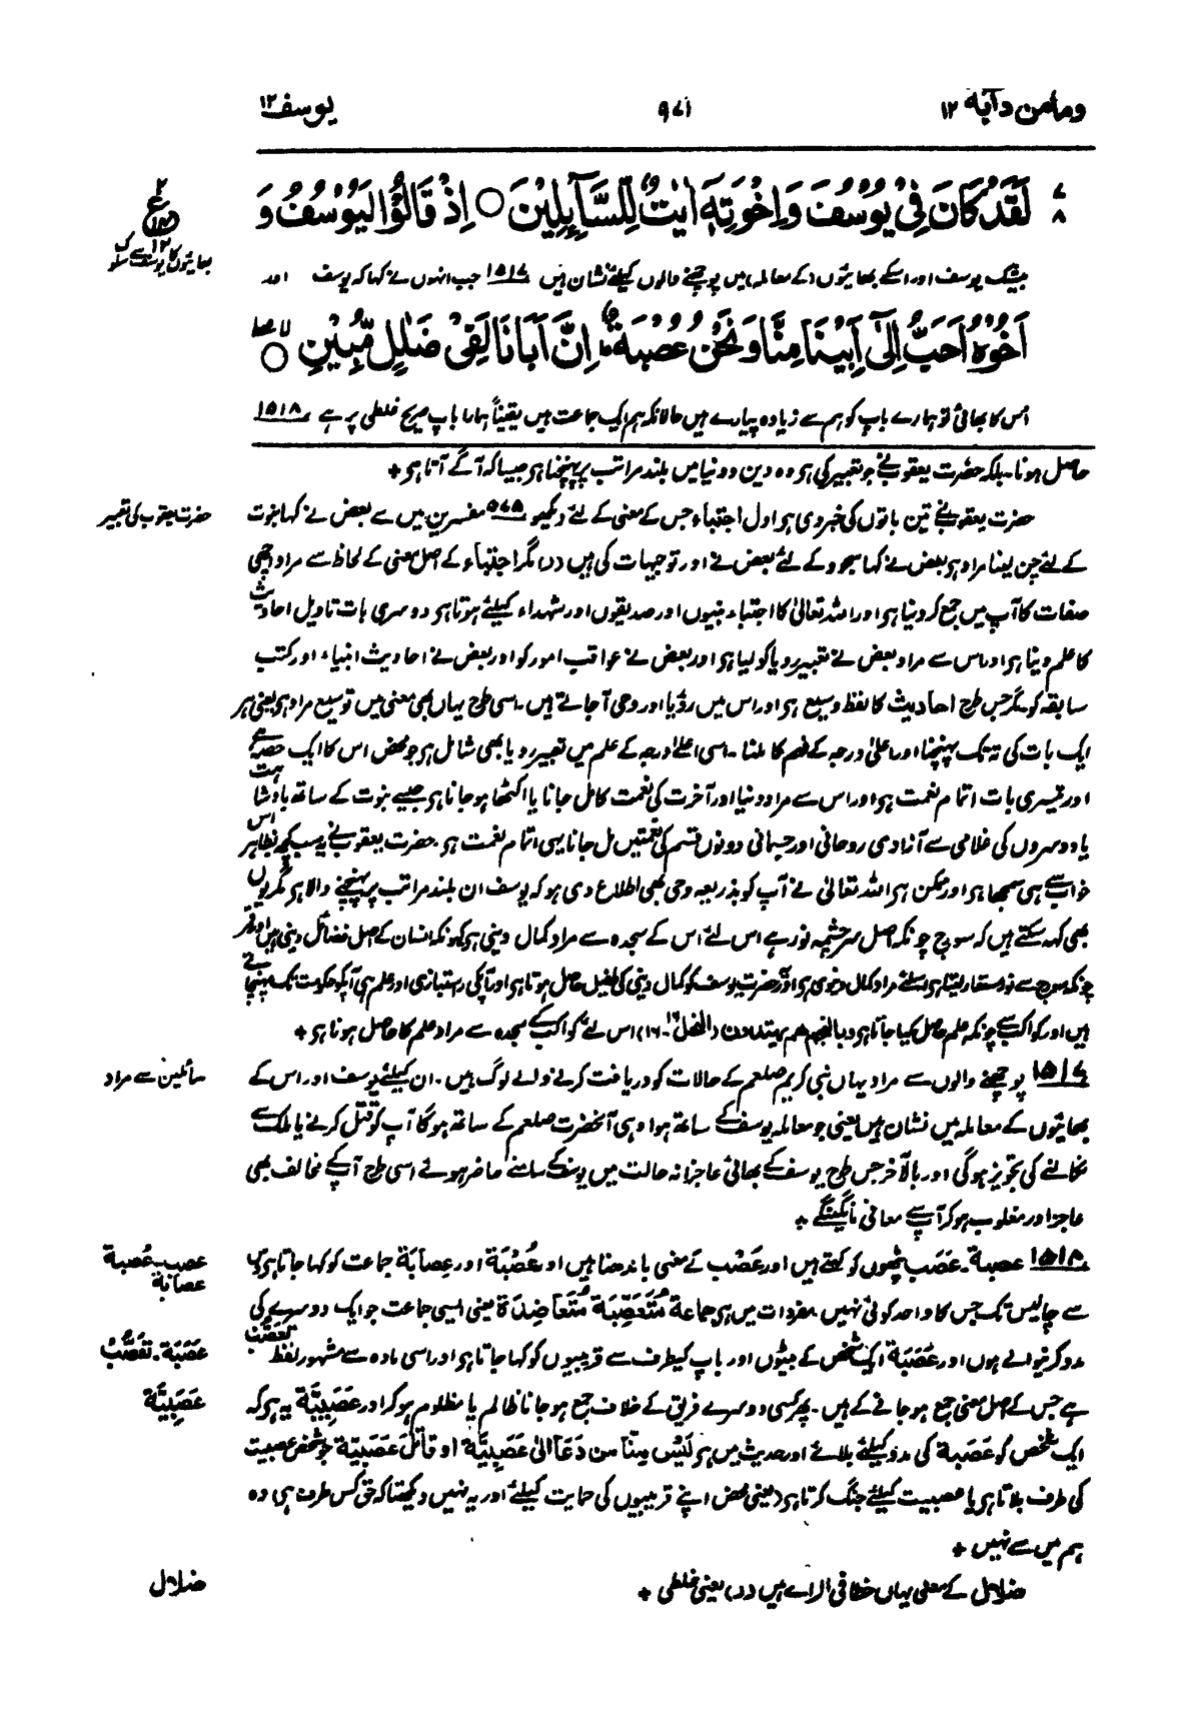 ومامن دآبة ۱۲
۹۷۱
یوسف ۱۲
۷ لَقَدْ كَانَ فِیْ یُوْسُفَ وَ اِخْوَتِهٖۤ اٰیٰتٌ لِّلسَّآىِٕلِیْنَ ○ اِذْ قَالُوْا لَیُوْسُفُ وَ
۸
۲
ع
۱۲
بھائیوں کا یوسف سے سلوک
بیشک یوسف اور اسکے بھائیوں (کے معاملہ) میں پوچھنے والوں کیلئے نشان ہیں ۱۵۱۷ جب انہوں نے کہا کہ یوسف اور
اَخُوْهُ اَحَبُّ اِلٰۤى اَبِیْنَا مِنَّا وَ نَحْنُ عُصْبَةٌ ؕ اِنَّ اَبَانَا لَفِیْ ضَلٰلٍ مُّبِیْنِ ○
اس کا بھائی تو ہمارے باپ کو ہم سے زیادہ پیارے ہیں حالانکہ ہم ایک جماعت ہیں یقیناً ہمارا باپ صریح غلطی پر ہے ۱۵۱۸
حاصل ہونا۔ بلکہ حضرت یعقوبؑ نے جو تعبیر کی ہو وہ دین و دنیا میں بلند مراتب پر پہنچنا ہو جیسا کہ آگے آتا ہو +
حضرت یعقوبؑ نے تین باتوں کی خبر دی ہو اول اجتباء جس کے معنی کے لئے دیکھو ۵۷۵ مفسرین میں سے بعض نے کہا نبوت
حضرت یعقوب کی تعبیر
کے لئے چن لینا مراد ہو بعض نے کہا سجود کے لئے بعض نے اور توجیہات کی ہیں (د) مگر اجتباء کے اصل معنی کے لحاظ سے مراد اچھی
صفات کا آپ میں جمع کر دینا ہو اور اللہ تعالیٰ کا اجتباء نبیوں اور صدیقوں اور شہداء کیلئے ہوتا ہو دوسری بات تاویل احادیث
کا علم دینا ہو اور اس سے مراد بعض نے تعبیر رویا کو لیا ہو اور بعض نے عواقب امور کو اور بعض نے احادیث انبیاء اور کتب
سابقہ کو مگر جس طرح احادیث کا لفظ وسیع ہو اور اس میں رؤیا اور وحی آ جاتے ہیں۔ اسی طرح یہاں بھی معنی میں توسیع مراد ہو یعنی ہر
ایک بات کی تہ تک پہنچنا اور اعلیٰ درجہ کے فہم کا ملنا۔ اسی اعلیٰ درجہ کے علم میں تعبیر رویا بھی شامل ہو جو محض اس کا ایک حصہ ہے
اور تیسری بات اتمام نعمت ہو اور اس سے مراد دنیا اور آخرت کی نعمت کا مل جانا یا اکٹھا ہو جانا ہو جیسے نبوت کے ساتھ بادشاہت
یا دوسروں کی غلامی سے آزادی روحانی اور جسمانی دونوں قسم کی نعمتیں مل جانا یہی اتمام نعمت ہو۔ حضرت یعقوبؑ نے یہ سب کچھ بظاہر اس
خواب سے ہی سمجھا ہو اور ممکن ہو اللہ تعالیٰ نے آپ کو بذریعہ وحی بھی اطلاع دی ہو کہ یوسف ان بلند مراتب پر پہنچنے والا ہو مگر یوں
بھی کہہ سکتے ہیں کہ سورج چونکہ اصل سرچشمہ نور ہے اس لئے اس کے سجدہ سے مراد کمال دینی ہو کیونکہ انسان کے اصل فضائل دینی ہیں اور قمر
چونکہ سورج سے نور مستعار لیتا ہو اسلئے مراد کمال دنیوی ہو اور حضرت یوسف کو کمال دینی کی طفیل حاصل ہوتا ہو اور آپکی راستبازی اور علم ہی آپکو حکومت تک پہنچاتے
ہیں اور کواکب سے چونکہ علم حاصل کیا جاتا ہو وبالنجم هم یهتدون (النحل ۱۶-۱۶) اس لئے کواکب کے سجدہ سے مراد علم کا حاصل ہونا ہو +
۱۵۱۷ پوچھنے والوں سے مراد یہاں نبی کریم صلعم کے حالات کو دریافت کرنے والے لوگ ہیں۔ ان کیلئے یوسف اور اس کے
سائلین سے مراد
بھائیوں کے معاملہ میں نشان ہیں یعنی جو معاملہ یوسف کے ساتھ ہوا وہی آنحضرت صلعم کے ساتھ ہوگا آپ کو قتل کرنے یا ملک سے
نکالنے کی تجویز ہوگی اور بالآخر جس طرح یوسف کے بھائی عاجزانہ حالت میں یوسف کے سامنے حاضر ہوئے اسی طرح آپ کے مخالف بھی
عاجز اور مغلوب ہو کر آپ سے معافی مانگینگے +
۱۵۱۸ عصبة۔ عَصَب پٹھوں کو کہتے ہیں اور عَصْب کے معنی باندھنا ہیں اور عُصْبَة اور عِصَابَة جماعت کو کہا جاتا ہو
عصب۔ عُصبة
عصابة
سے چالیس تک جس کا واحد کوئی نہیں۔ مفردات میں ہو جماعة مُتَعَصِّبَة مُتَعَاضِدَة یعنی ایسی جماعت جو ایک دوسرے کی
مدد کرنیوالے ہوں اور عَصَبَة ایک شخص کے بیٹوں اور باپ کیطرف سے قریبیوں کو کہا جاتا ہو اور اسی مادہ سے مشہور لفظ تعصّب
عَصَبَة۔ تعَصُّب
ہے جس کے اصل معنی جمع ہو جانے کے ہیں۔ پھر کسی دوسرے فریق کے خلاف جمع ہو جانا ظالم یا مظلوم ہو کر اور عَصَبِیَّة یہ ہو کہ
عَصَبِیَّة
ایک شخص کو عَصَبة کی مدد کیلئے بلائے اور حدیث میں ہو لَیْسَ مِنَّا من دَعَا الیٰ عَصَبِیَّة او قَاتَلَ عَصَبِیَّة جو شخص عصبیت
کی طرف بلاتا ہو یا عصبیت کیلئے جنگ کرتا ہو (یعنی محض اپنے قریبیوں کی حمایت کیلئے اور یہ نہیں دیکھتا کہ حق کس طرف ہی) وہ
ہم میں سے نہیں +
ضلال کے معنی یہاں خطا فی الرائے ہیں (د) یعنی غلطی +
ضلال